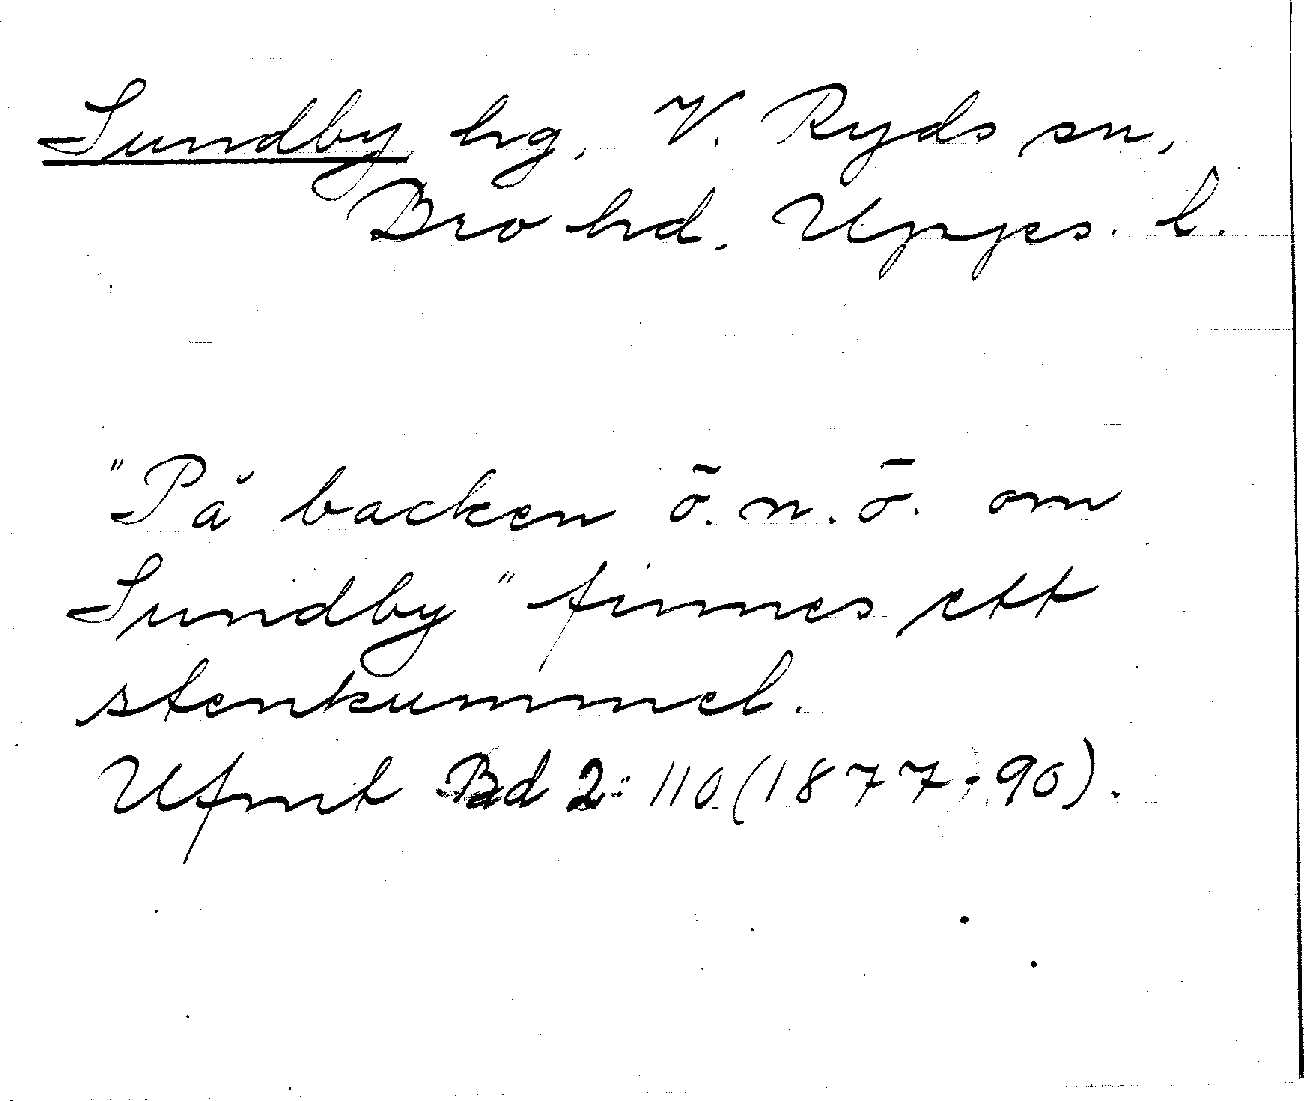 Sundby hg, V. Ryds sn,
Bro hd. Upps. l.
"På backen ö.n.ö. om
Sundby" finnes ett
stenkummel.
Ufmt Bd 2: 110 (1877-90).